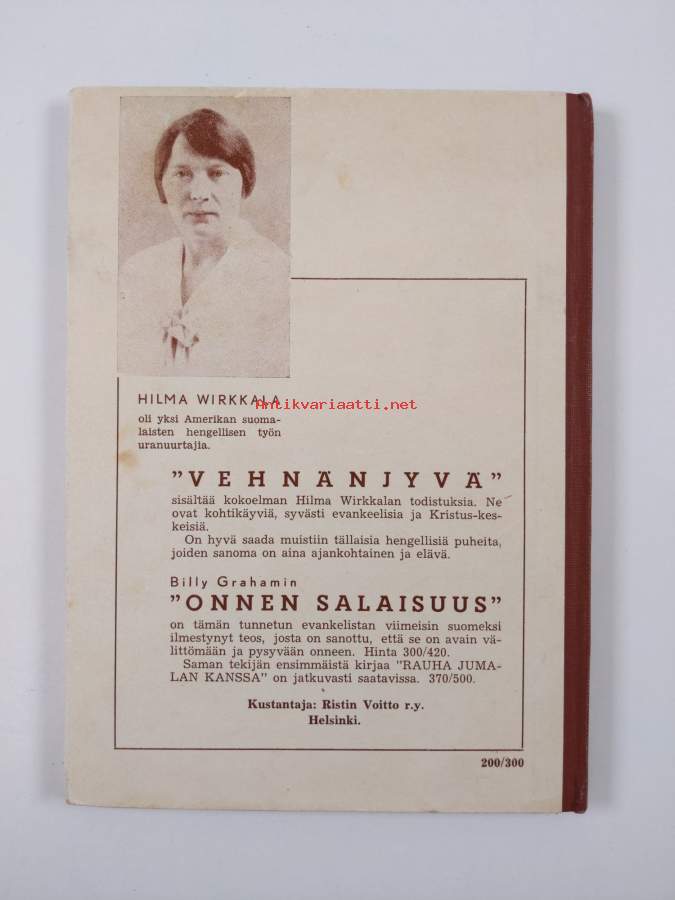 HILMA WIRKKALA
Antikvariaatti.net
oli yksi Amerikan suoma-
laisten hengellisen työn
uranuurtajia.
"VEHNÄNJYVÄ"
sisältää kokoelman Hilma Wirkkalan todistuksia. Ne
ovat kohtikäyviä, syvästi evankeelisia ja Kristus-kes-
keisiä.
On hyvä saada muistiin tällaisia hengellisiä puheita,
joiden sanoma on aina ajankohtainen ja elävä.
Billy Grahamin
"ONNEN SALAISUUS"
on tämän tunnetun evankelistan viimeisin suomeksi
ilmestynyt teos, josta on sanottu, että se on avain vä-
littömään ja pysyvään onneen. Hinta 300/420.
Saman tekijän ensimmäistä kirjaa "RAUHA JUMA-
LAN KANSSA" on jatkuvasti saatavissa. 370/500.
Kustantaja: Ristin Voitto r.y.
Helsinki.
200/300